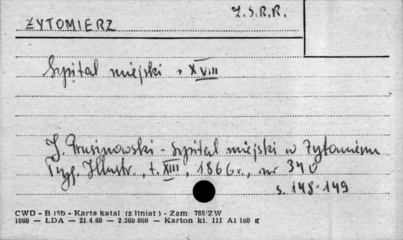 Z.S.R.R.
ŻYTOMIERZ
Szpital miejski, XVIII
J. Prusinowski - Szpital miejski w Żytomierzu
Tyg. Illustr., t. XIII, 1866 r., nr 340
s. 148-149
CWD - B 15b - Karta katal (z liniat) - Zam 788/ZW
1060 - LDA - 21.4.60 - 2.360 000 - Karton kl. III A1 160 g